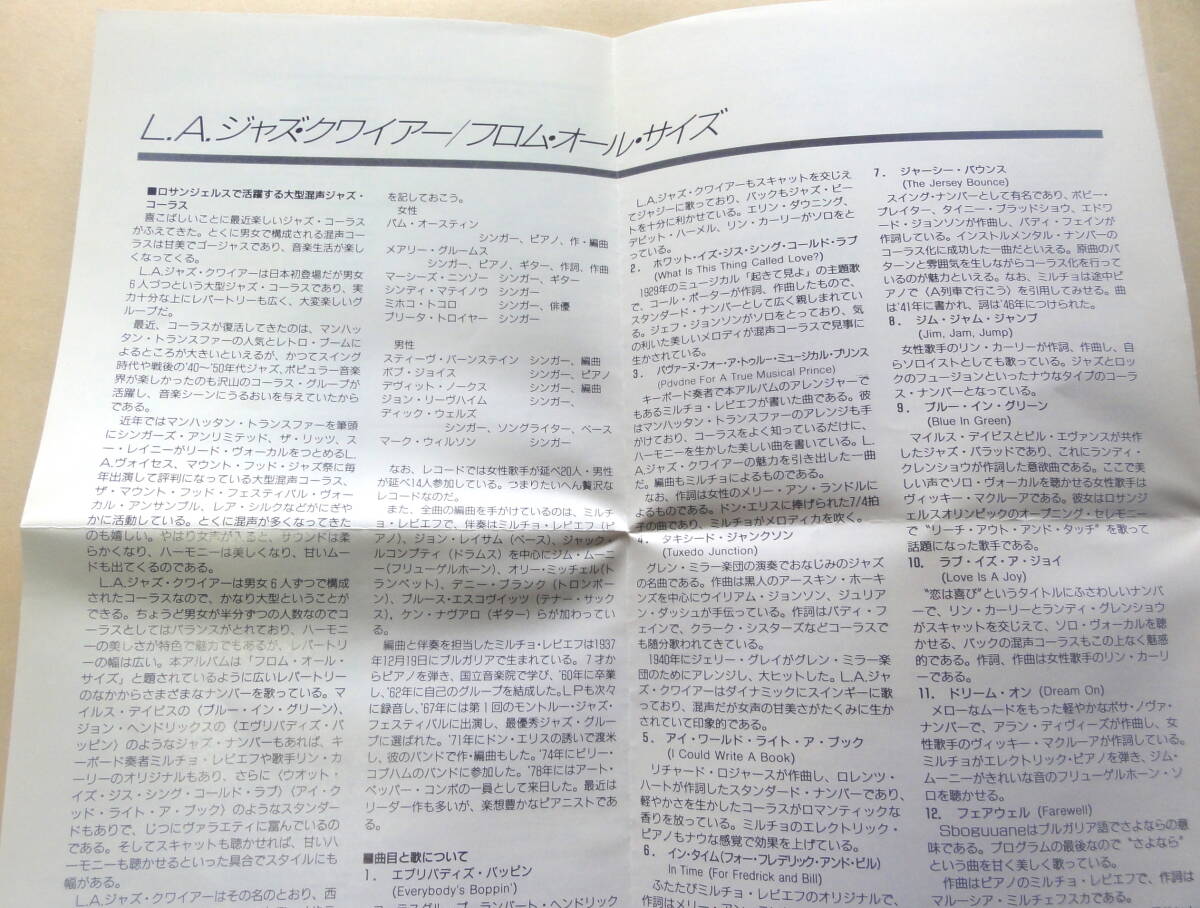 L.A.ジャズ・クワイアー/フロム・オール・サイズ
■ロサンジェルスで活躍する大型混声ジャズ・
コーラス
喜こばしいことに最近楽しいジャズ・コーラス
がふえてきた。とくに男女で構成される混声コー
ラスは甘美でゴージャスであり、音楽生活が楽し
くなってくる。
L.A.ジャズ・クワイアーは日本初登場だが男女
6人づつという大型ジャズ・コーラスであり、実
力十分な上にレパートリーも広く、大変楽しいグ
ループだ。
最近、コーラスが復活してきたのは、マンハッ
タン・トランスファーの人気とレトロ・ブームに
よるところが大きいといえるが、かつてスイング
時代や戦後の'40〜'50年代ジャズ、ポピュラー音楽
界が楽しかったのも沢山のコーラス・グループが
活躍し、音楽シーンにうるおいを与えていたから
である。
近年ではマンハッタン・トランスファーを筆頭
にシンガーズ・アンリミテッド、ザ・リッツ、ス
ー・レイニーがリード・ヴォーカルをつとめるL.
A.ヴォイセス、マウント・フッド・ジャズ祭に毎
年出演して評判になっている大型混声コーラス、
ザ・マウント・フッド・フェスティバル・ヴォー
カル・アンサンブル、レア・シルクなどがにぎや
かに活動している。とくに混声が多くなってきた
のも嬉しい。やはり女声が入ると、サウンドは柔
らかくなり、ハーモニーは美しくなり、甘いムー
ドも出てくるのである。
L.A.ジャズ・クワイアーは男女6人ずつで構成
されたコーラスなので、かなり大型ということが
できる。ちょうど男女が半分ずつの人数なのでコ
ーラスとしてはバランスがとれており、ハーモニ
ーの美しさが特色で魅力でもあるが、レパートリ
ーの幅は広い。本アルバムは「フロム・オール・
サイズ」と題されているように広いレパートリー
のなかからさまざまなナンバーを歌っている。マ
イルス・デイビスの〈ブルー・イン・グリーン〉、
ジョン・ヘンドリックスの〈エヴリバディズ・バ
ッピン〉のようなジャズ・ナンバーもあれば、キ
ーボード奏者ミルチョ・レビエフや歌手リン・カ
ーリーのオリジナルもあり、さらに〈ウオット・
イズ・ジス・シング・コールド・ラブ〉〈アイ・ク
ッド・ライト・ア・ブック〉のようなスタンダー
ドもありで、じつにヴァラエティに富んでいるの
である。そしてスキャットも聴かせれば、甘いハ
ーモニーも聴かせるといった具合でスタイルにも
幅がある。
L.A.ジャズ・クワイアーはその名のとおり、西
を記しておこう。
女性
パム・オースティン
シンガー、ピアノ、作・編曲
メアリー・グルームス
シンガー、ピアノ、ギター、作詞、作曲
マーシーズ・ニンゾー シンガー、ギター
シンディ・マテイノウ シンガー
ミホコ・トコロ シンガー、俳優
ブリータ・トロイヤー シンガー
男性
スティーヴ・バーンステイン シンガー、編曲
ボブ・ジョイス シンガー、ピアノ
デヴィット・ノークス シンガー、編曲
ジョン・リーヴハイム シンガー、
ディック・ウェルズ
シンガー、ソングライター、ベース
マーク・ウィルソン シンガー
なお、レコードでは女性歌手が延べ20人・男性
が延べ14人参加している。つまりたいへん贅沢な
レコードなのだ。
また、全曲の編曲を手がけているのは、ミルチ
ョ・レビエフで、伴奏はミルチョ・レビエフ(ピ
アノ)、ジョン・レイサム(ベース)、ジャック・
ルコンプティ(ドラムス)を中心にジム・ムーニ
ー(フリューゲルホーン)、オリー・ミッチェル(ト
ランペット)、デニー・ブランク(トロンボー
ン)、ブルース・エスコヴィッツ(テナー・サック
ス)、ケン・ナヴァロ(ギター)らが加わってい
る。
編曲と伴奏を担当したミルチョ・レビエフは1937
年12月19日にブルガリアで生まれている。7才か
らピアノを弾き、国立音楽院で学び、'60年に卒業
し、'62年に自己のグループを結成した。LPも次々
に録音し、'67年には第1回のモントルー・ジャズ・
フェスティバルに出演し、最優秀ジャズ・グルー
プに選ばれた。'71年にドン・エリスの誘いで渡米
し、彼のバンドで作・編曲もした。'74年にビリー・
コブハムのバンドに参加した。'78年にはアート・
ペッパー・コンボの一員として来日した。最近は
リーダー作も多いが、楽想豊かなピアニストであ
る。
■曲目と歌について
1. エブリバディズ・バッピン
(Everybody's Boppin')
L.A.ジャズ・クワイアーもスキャットを交じえ
てジャジーに歌っており、バックもジャズ・ビー
トを十分に利かせている。エリン・ダウニング、
デビット・ハーメル、リン・カーリーがソロをと
っている。
2. ホワット・イズ・ジス・シング・コールド・ラブ
(What Is This Thing Called Love?)
1929年のミュージカル「起きて見よ」の主題歌
で、コール・ポーターが作詞、作曲したもので、
スタンダード・ナンバーとして広く親しまれてい
る。ジェフ・ジョンソンがソロをとっており、気
の利いた美しいメロディが混声コーラスで見事に
生かされている。
3. パヴァーヌ・フォー・ア・トゥルー・ミュージカル・プリンス
(Pdvdne For A True Musical Prince)
キーボード奏者で本アルバムのアレンジャーで
もあるミルチョ・レビエフが書いた曲である。彼
はマンハッタン・トランスファーのアレンジも手
がけており、コーラスをよく知っているだけに、
ハーモニーを生かした美しい曲を書いている。L.
A.ジャズ・クワイアーの魅力を引き出した一曲
だ。編曲もミルチョによるものである。
なお、作詞は女性のメリー・アン・ランドルに
よるものである。ドン・エリスに捧げられた7/4拍
子の曲であり、ミルチョがメロディカを吹く。
4. タキシード・ジャンクソン
(Tuxedo Junction)
グレン・ミラー楽団の演奏でおなじみのジャズ
の名曲である。作曲は黒人のアースキン・ホーキ
ンズを中心にウイリアム・ジョンソン、ジュリア
ン・ダッシュが手伝っている。作詞はバディ・フ
ェインで、クラーク・シスターズなどコーラスで
も随分歌われてきている。
1940年にジェリー・グレイがグレン・ミラー楽
団のためにアレンジし、大ヒットした。L.A.ジャ
ズ・クワイアーはダイナミックにスインギーに歌
っており、混声だが女声の甘美さがたくみに生か
されていて印象的である。
5. アイ・ワールド・ライト・ア・ブック
(I Could Write A Book)
リチャード・ロジャースが作曲し、ロレンツ・
ハートが作詞したスタンダード・ナンバーであり、
軽やかさを生かしたコーラスがロマンティックな
香りを放っている。ミルチョのエレクトリック・
ピアノもナウな感覚で効果を上げている。
6. イン・タイム(フォー・フレデリック・アンド・ビル)
In Time (For Fredrick and Bill)
ふたたびミルチョ・レビエフのオリジナルで、
7. ジャーシー・バウンス
(The Jersey Bounce)
スイング・ナンバーとして有名であり、ボビー・
プレイター、タイニー・ブラッドショウ、エドワ
ード・ジョンソンが作曲し、バディ・フェインが
作詞している。インストルメンタル・ナンバーの
コーラス化に成功した一曲だといえる。原曲のパ
ターンと雰囲気を生しながらコーラス化を行って
いるのが魅力といえる。なお、ミルチョは途中ピ
アノで〈A列車で行こう〉を引用してみせる。曲
は'41年に書かれ、詞は'46年につけられた。
8. ジム・ジャム・ジャンプ
(Jim, Jam, Jump)
女性歌手のリン・カーリーが作詞、作曲し、自
らソロイストとしても歌っている。ジャズとロッ
クのフュージョンといったナウなタイプのコーラ
ス・ナンバーとなっている。
9. ブルー・イン・グリーン
(Blue In Green)
マイルス・デイビスとビル・エヴァンスが共作
したジャズ・バラッドであり、これにランディ・
クレンショウが作詞した意欲曲である。ここで美
しい声でソロ・ヴォーカルを聴かせる女性歌手は
ヴィッキー・マクルーアである。彼女はロサンジ
ェルスオリンピックのオープニング・セレモニー
で〝リーチ・アウト・アンド・タッチ〟を歌って
話題になった歌手である。
10. ラブ・イズ・ア・ジョイ
(Love Is A Joy)
〝恋は喜び〟というタイトルにふさわしいナンバ
ーで、リン・カーリーとランディ・グレンショウ
がスキャットを交じえて、ソロ・ヴォーカルを聴
かせる、バックの混声コーラスもこの上なく魅惑
的である。作詞、作曲は女性歌手のリン・カーリ
ーである。
11. ドリーム・オン (Dream On)
メローなムードをもった軽やかなボサ・ノヴァ・
ナンバーで、アラン・ディヴィーズが作曲し、女
性歌手のヴィッキー・マクルーアが作詞している。
ミルチョがエレクトリック・ピアノを弾き、ジム・
ムーニーがきれいな音のフリューゲルホーン・ソ
ロを聴かせる。
12. フェアウェル (Farewell)
Sboguuaneはブルガリア語でさよならの意
味である。プログラムの最後なので〝さよなら〟
という曲を甘く美しく歌っている。
作曲はピアノのミルチョ・レビエフで、作詞は
マルーシア・ミルチェフスカである。